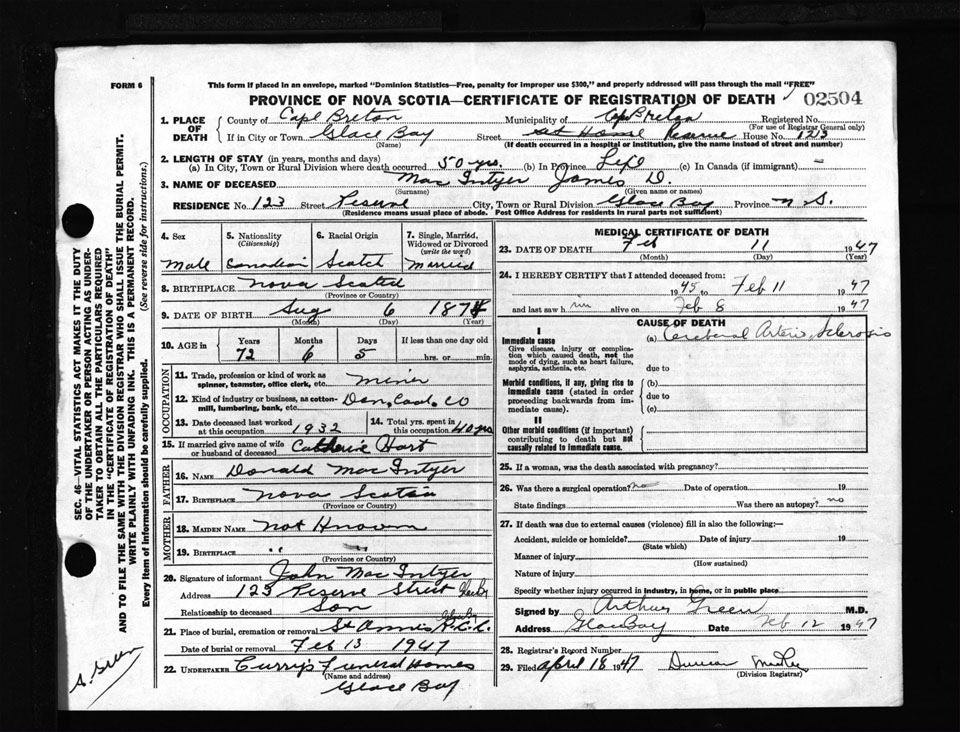 FORM 6
This form if placed in an envelope, marked "Dominion Statistics—Free, penalty for improper use $300," and properly addressed will pass through the mail "FREE"
PROVINCE OF NOVA SCOTIA—CERTIFICATE OF REGISTRATION OF DEATH 02504
1. PLACE OF DEATH County of Cape Breton Municipality of Cape Breton Registered No.
(For use of Registrar General only)
If in City or Town Glace Bay Street at Home Reserve House No. 1213
(Name) (If death occurred in a hospital or institution, give the name instead of street and number)
2. LENGTH OF STAY (in years, months and days)
(a) In City, Town or Rural Division where death occurred 50 yrs. (b) In Province Life (c) In Canada (if immigrant) —
3. NAME OF DECEASED Mac Intyer James D.
(Surname) (Given name or names)
RESIDENCE No. 123 Street Reserve City, Town or Rural Division Glace Bay Province N. S.
(Residence means usual place of abode. Post Office Address for residents in rural parts not sufficient)
4. Sex 5. Nationality (Citizenship) 6. Racial Origin 7. Single, Married, Widowed or Divorced (write the word)
Male Canadian Scotch Married
8. BIRTHPLACE Nova Scotia
(Province or Country)
9. DATE OF BIRTH Aug 6 1874
(Month) (Day) (Year)
10. AGE in Years Months Days If less than one day old
72 6 5 hrs. or min.
OCCUPATION
11. Trade, profession or kind of work as spinner, teamster, office clerk, etc. miner
12. Kind of industry or business, as cotton-mill, lumbering, bank, etc. Dom. Coal. Co
13. Date deceased last worked at this occupation 1932 14. Total yrs. spent in this occupation 40 yrs
15. If married give name of wife or husband of deceased Catherine Hart
FATHER
16. NAME Donald Mac Intyer
17. BIRTHPLACE Nova Scotia
(Province or Country)
MOTHER
18. MAIDEN NAME Not Known
19. BIRTHPLACE " "
(Province or Country)
20. Signature of informant John Mac Intyer
Address 123 Reserve Street Glace Bay
Relationship to deceased Son
21. Place of burial, cremation or removal St Annes
Date of burial or removal Feb 13 1947
22. UNDERTAKER Curry's Funeral Homes
(Name and address)
Glace Bay
MEDICAL CERTIFICATE OF DEATH
23. DATE OF DEATH Feb 11 1947
(Month) (Day) (Year)
24. I HEREBY CERTIFY that I attended deceased from:
1945 to Feb 11 1947
and last saw h im alive on Feb 8 1947
CAUSE OF DEATH
I
Immediate cause (a) Cerebral Arterio Sclerosis
Give disease, injury or complication which caused death, not the mode of dying, such as heart failure, asphyxia, asthenia, etc. due to
Morbid conditions, if any, giving rise to immediate cause (stated in order proceeding backwards from immediate cause). (b) due to (c)
II
Other morbid conditions (if important) contributing to death but not causally related to immediate cause.
25. If a woman, was the death associated with pregnancy?
26. Was there a surgical operation? no Date of operation 19
State findings Was there an autopsy? no
27. If death was due to external causes (violence) fill in also the following:—
Accident, suicide or homicide? Date of injury 19
(State which)
Manner of injury
(How sustained)
Nature of injury
Specify whether injury occurred in industry, in home, or in public place
Signed by Arthur Green M.D.
Address Glace Bay Date Feb 12 1947
28. Registrar's Record Number
29. Filed April 18 1947 Duncan
(Division Registrar)
SEC. 46—VITAL STATISTICS ACT MAKES IT THE DUTY
OF THE UNDERTAKER OR PERSON ACTING AS UNDERTAKER
TO OBTAIN ALL THE PARTICULARS REQUIRED
IN THE "CERTIFICATE OF REGISTRATION OF DEATH"
AND TO FILE THE SAME WITH THE DIVISION REGISTRAR WHO SHALL ISSUE THE BURIAL PERMIT.
WRITE PLAINLY WITH UNFADING INK. THIS IS A PERMANENT RECORD.
Every item of information should be carefully supplied. (See reverse side for instructions.)
A. Green